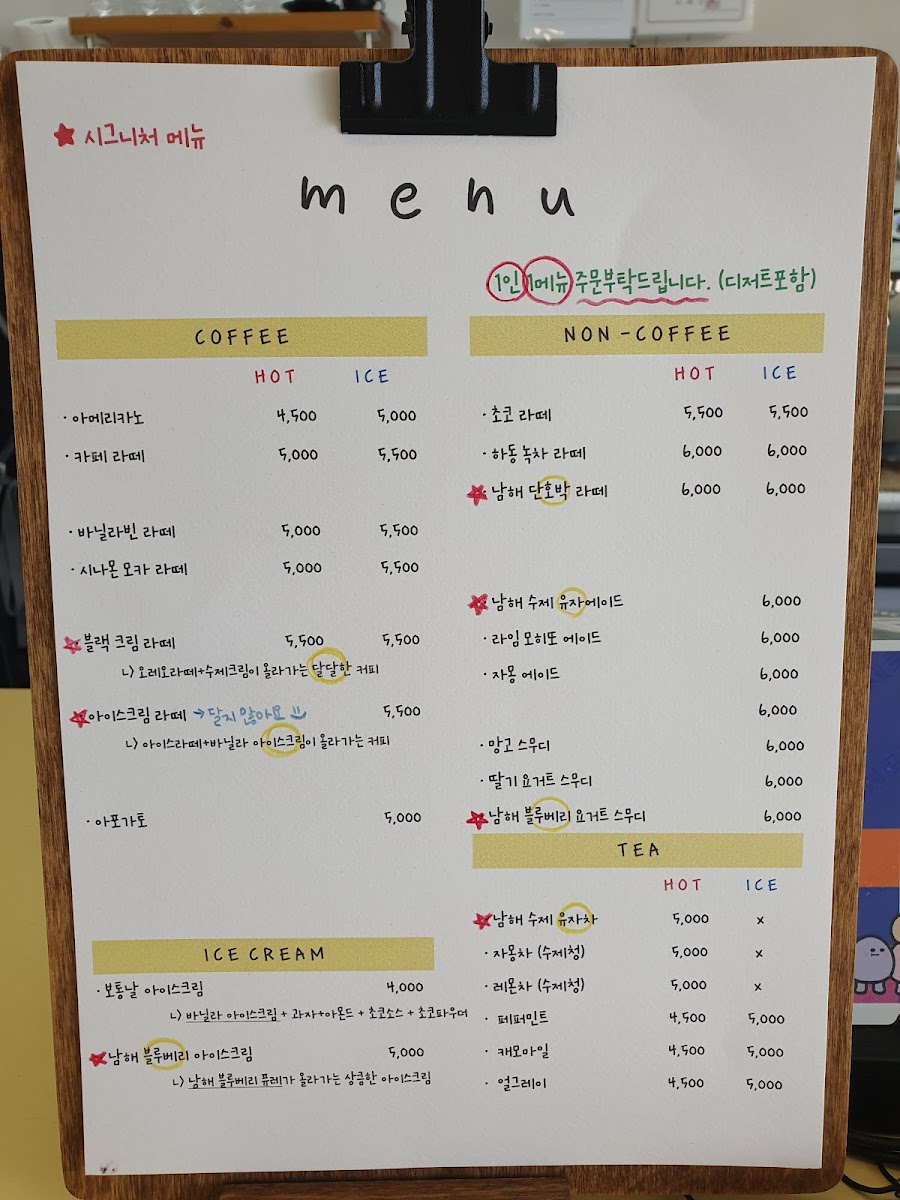 ★ 시그니처 메뉴
menu
1인 1메뉴 주문부탁드립니다. (디저트포함)
COFFEE
HOT ICE
· 아메리카노 4,500 5,000
· 카페 라떼 5,000 5,500
· 바닐라빈 라떼 5,000 5,500
· 시나몬 모카 라떼 5,000 5,500
★ 블랙 크림 라떼 5,500 5,500
ㄴ) 오레오라떼+수제크림이 올라가는 달달한 커피
★ 아이스크림 라떼 → 달지 않아요 5,500
ㄴ) 아이스라떼+바닐라 아이스크림이 올라가는 커피
· 아포가토 5,000
ICE CREAM
· 보통날 아이스크림 4,000
ㄴ) 바닐라 아이스크림 + 과자+아몬드 + 초코소스 + 초코파우더
★ 남해 블루베리 아이스크림 5,000
ㄴ) 남해 블루베리 퓨레가 올라가는 상큼한 아이스크림
NON-COFFEE
HOT ICE
· 초코 라떼 5,500 5,500
· 하동 녹차 라떼 6,000 6,000
★ 남해 단호박 라떼 6,000 6,000
★ 남해 수제 유자에이드 6,000
· 라임 모히또 에이드 6,000
· 자몽 에이드 6,000
6,000
· 망고 스무디 6,000
· 딸기 요거트 스무디 6,000
★ 남해 블루베리 요거트 스무디 6,000
TEA
HOT ICE
★ 남해 수제 유자차 5,000 x
· 자몽차 (수제청) 5,000 x
· 레몬차 (수제청) 5,000 x
· 페퍼민트 4,500 5,000
· 캐모마일 4,500 5,000
· 얼그레이 4,500 5,000